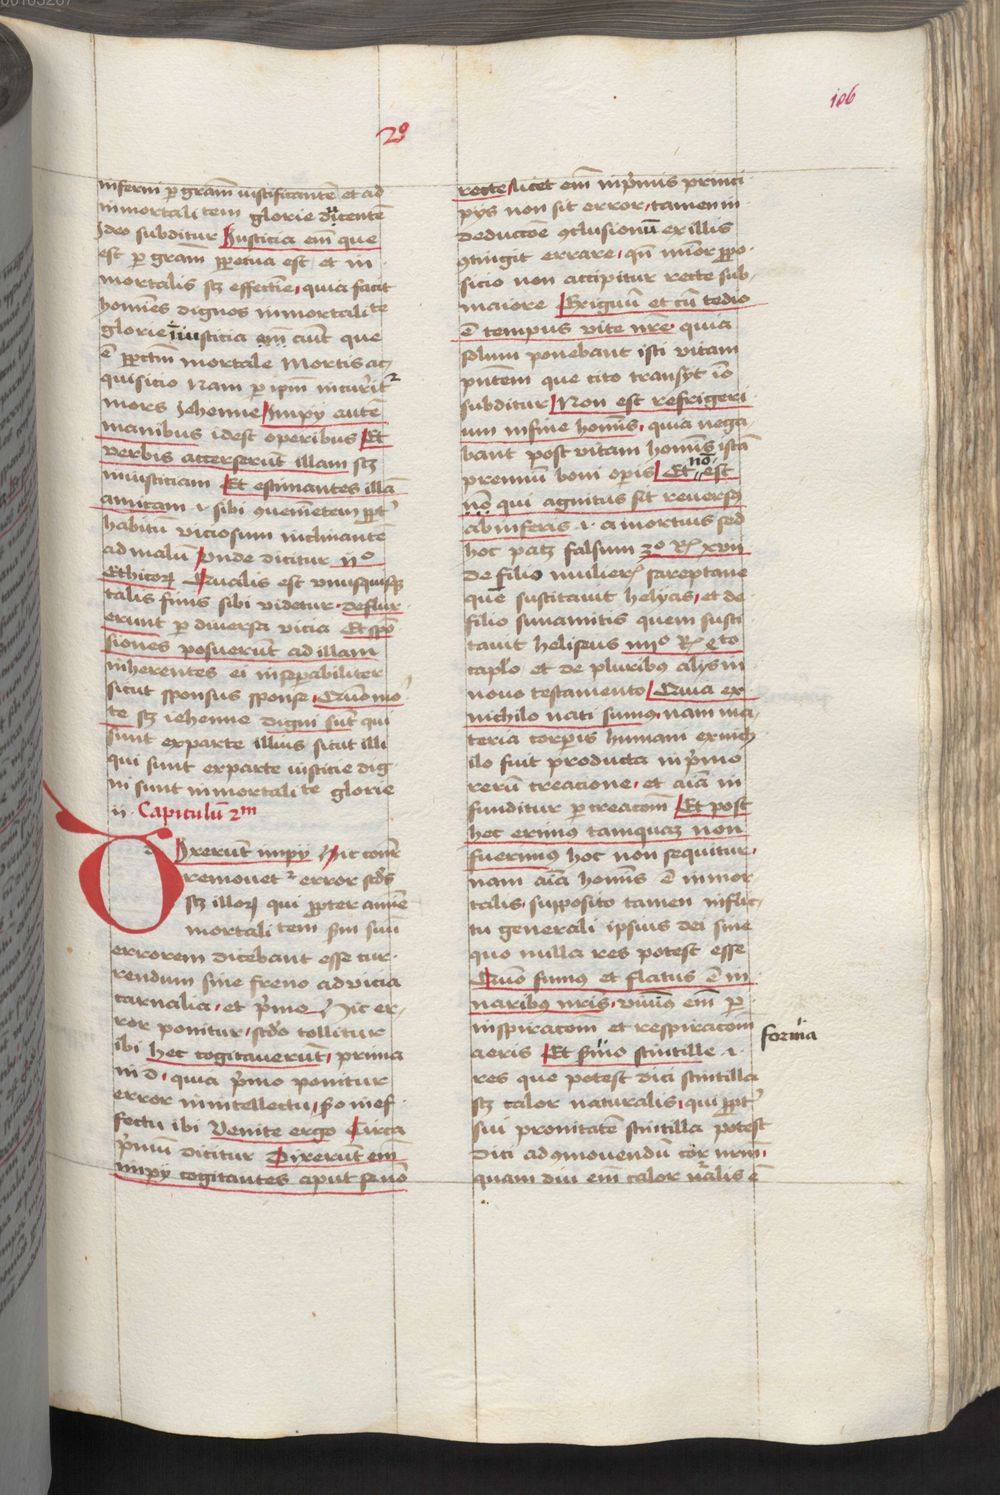 106
2º
inferni per gram̄ iustificantē et ad
inmortalitem glorie ducentē
Ideo subditur Iusticia em̄ que
est per gram̄ perpetua est et in
mortalis scz effectiē, quia facit
homīes dignos inmortalite
glorie īiusticia am̄ ciūt que
ē peccm̄ mortale Mortis ac
quisicio Nam per ipm̄ incurit²
mors Iehenne Impy autē
manibus idest operibus Et
verbis accerserūt illam scz
iniusticiam Et estimantes illā
amicam .i. sibi ꝯuenietem
habitū viciosum inclinantē
ad malū Vnde dicitur iiº
Ethicorꝝ Qualis est vnusquisqz
talis finis sibi videtur. deflux
erunt per diuersa vicia Et spō
siones posuerūt ad illam
inherentes ei inseperabiliter
sicut sponsus sponse, Quō mo
te scz iehenne digni sūt qui
sunt exparte illius sicut illi
qui sunt exparte iusticie dig
ni sunt inmortalite glorie
ii. Capitulū 2m
d Ixerūt impy Hic
remouet² error scds
scz illorꝝ qui propter anime
mortalitem scm̄ suū
errorem dicebant esse cur
rendum sine freno ad vicia
carnalia, et p̄mo Hic er
ror ponitur, scdo tollitur
ibi hec cogitauerūt, prima
in d, quia p̄mo ponitur
error in intellectu, scdo in ef
fectu ibi Venite ergo Circa
p̄mū dicitur Dixerūt em̄
impy cogitantes aput se nō
recte, licet em̄ inp̄mis princi
pys non sit error, tamen in
deductōe ꝯclusionū ex illis
ꝯtingit errare, qn̄ minor prpo
sicio non accipitur recte sub
maiore Exiguū et cū tedio
ē tempus vite nr̄e quia
solum ponebant isti vitam
pn̄tem que cito transyt iō
subditur Non est refrigeri
um in fine homīs, quia nega
bant post vitam homīs istā
premiū boni opris Et nō est
nō qui agnitus sit reuersꝯ
ab inferis .i. a mortuis sed
hoc patz falsum 3º Rꝝ xvii
de filio mulierꝭ sareptane
quē suscitauit helyas, et de
filio sunamitis quem susci
tauit heliseus iiiiº Rꝝ qͣto
caplo et de pluribꝯ alys in
nouo testamento Quia ex
nichilo nati sumꝯ, nam ma
teria corpris humani ex nich
ilo fuit producta in p̄mo
rerū creacione, et aīa in
funditur per creacōm Et post
hec erimꝯ tamquaz non
fuerimꝯ hoc non sequitur,
nam aīa homīs ē inmor
talis, supposito tamen influc
tu generali ipsius dei sine
quo nulla res potest esse
Quō fumꝯ et flatus ē in
naribꝯ nr̄is, viuīꝯ em̄ per
inspiracōm et respiracōm
aeris Et smo scintille .i. forma
res que potest dici scintilla
scz calor naturalis, qui propter
sui promitatē scintilla potest
dici ad ꝯmouendū cor nr̄m,
quam diu em̄ calor nr̄alis ē